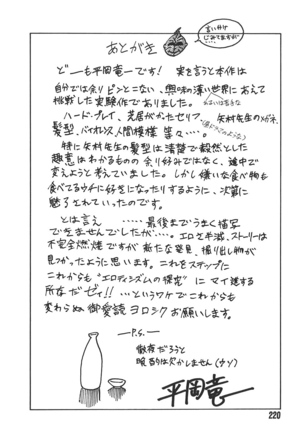 あとがき
言い分けじみてますが…
どーも平岡竜一です! 実を言うと本作は
自分では余りピンとこない、興味の薄い世界にあえて
挑戦した実験作でありました。
ハード・プレイ、文居がかったセリフ、矢村先生のメガネ、
髪型、バイオレンス、人間模様 等々…。
特に矢村先生の髪型は清楚で毅然とした
趣意はわかるものの余り好みではなく、途中で
変えようと考えていました。しかし嫌いな食べ物も
食べてるウチに好きになったりするように、次第に
魅了されていったのです。
とは言え ……最後までうまく描写
できませんでしたが…。エロさ半減、ストーリーは
不完全燃焼ですが 新たな発見、掘り出し物が
見つかったように思います。これをステップに
これからも"エロティシズムの探究"にマイ進する
所存だゼィ!! …というワケでこれからも
変わらぬ御愛読ヨロシクお願いします。
—P.S.—
徹夜だろうと
眠酒は欠かしません(ウソ)
平岡竜一
220